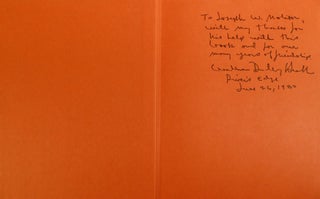 To Joseph W. Molitor,
with my thanks for
his help with this
book and for our
many years of friendship
River's Edge
June 26, 19